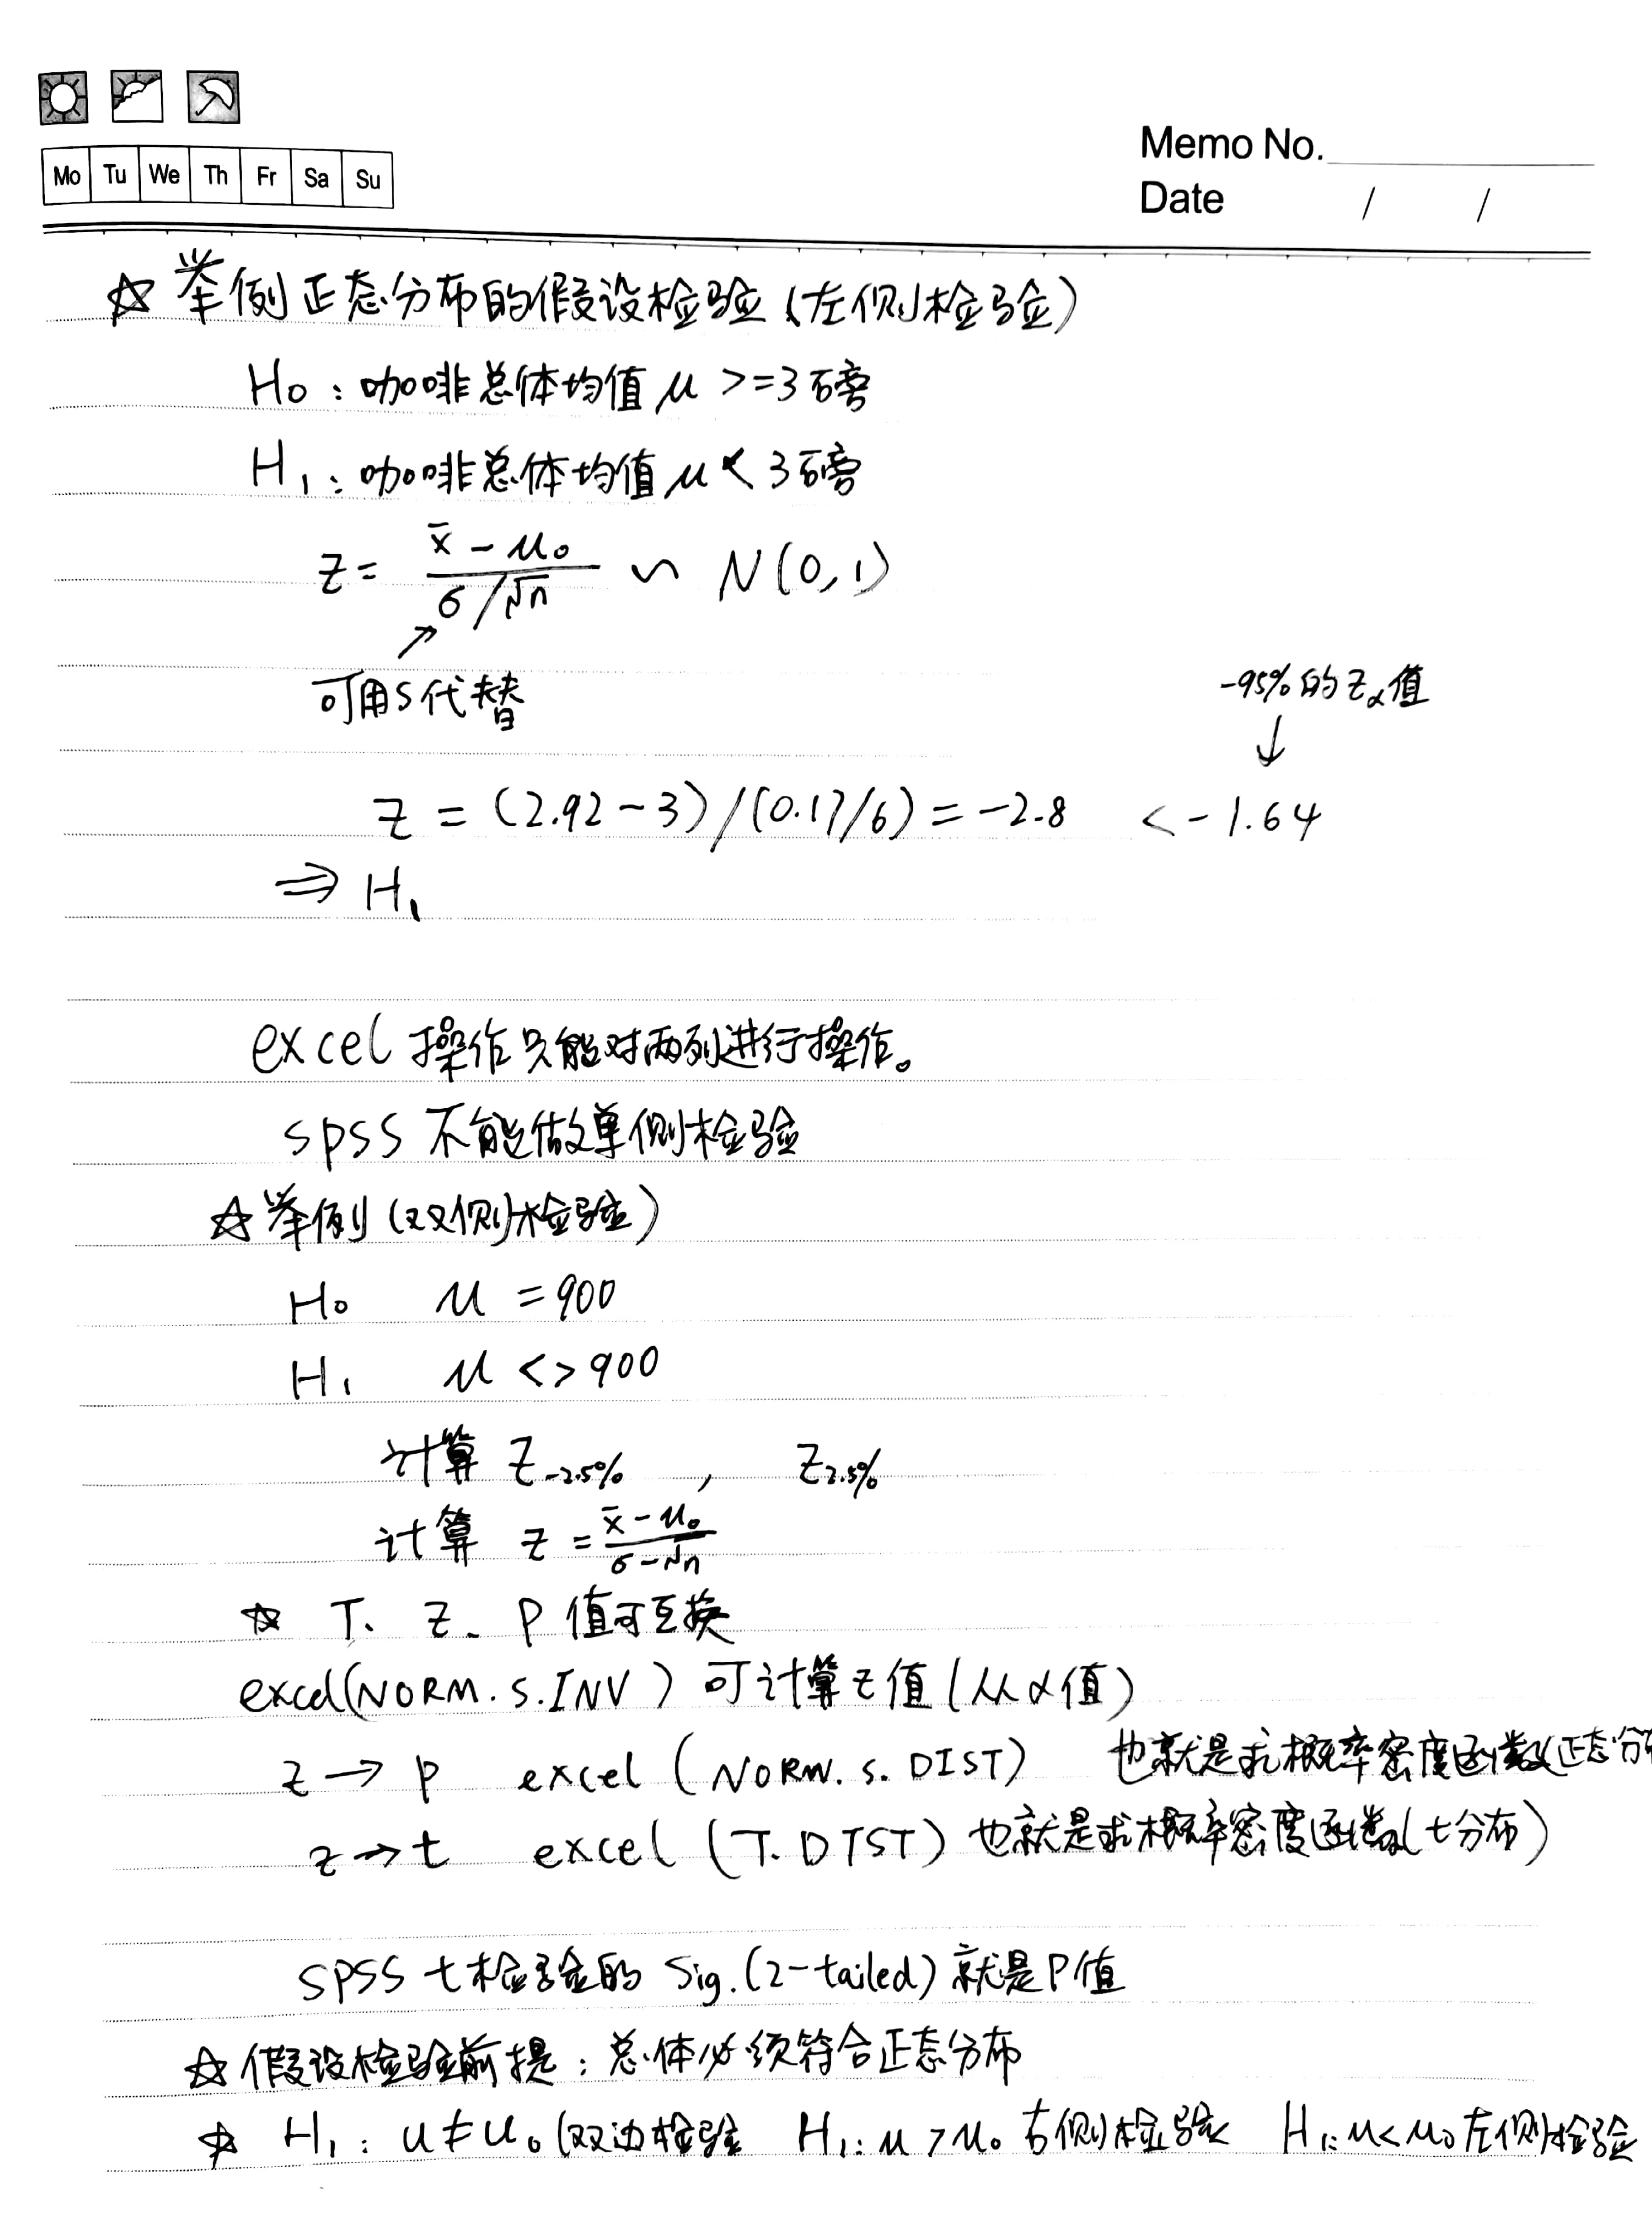 Mo Tu We Th Fr Sa Su
Memo No.
Date / /
☆ 举例正态分布的假设检验（左侧检验）
H₀：咖啡总体均值 μ >=3磅
H₁：咖啡总体均值 μ < 3磅
z = (x̄ - μ₀) / (σ/√n) ∽ N(0,1)
↗
可用S代替
-95%的Zα值
↓
z = (2.92-3)/(0.17/6) = -2.8 < -1.64
⇒ H₁
excel 操作只能对两列进行操作。
spss 不能做单侧检验
☆举例（双侧检验）
H₀ μ = 900
H₁ μ <> 900
计算 Z₋₂.₅% ， Z₂.₅%
计算 z = (x̄ - μ₀) / (σ-√n)
☆ T、Z、P 值可互换
excel(NORM.S.INV) 可计算z值（从α值）
z → p excel (NORM.S.DIST) 也就是求概率密度函数(正态分布
z → t excel (T.DIST) 也就是求概率密度函数(t分布)
SPSS t检验的 Sig.(2-tailed) 就是P值
☆假设检验前提：总体必须符合正态分布
☆ H₁: u≠u₀ (双边检验 H₁: u>u₀ 右侧检验 H₁: u<u₀ 左侧检验